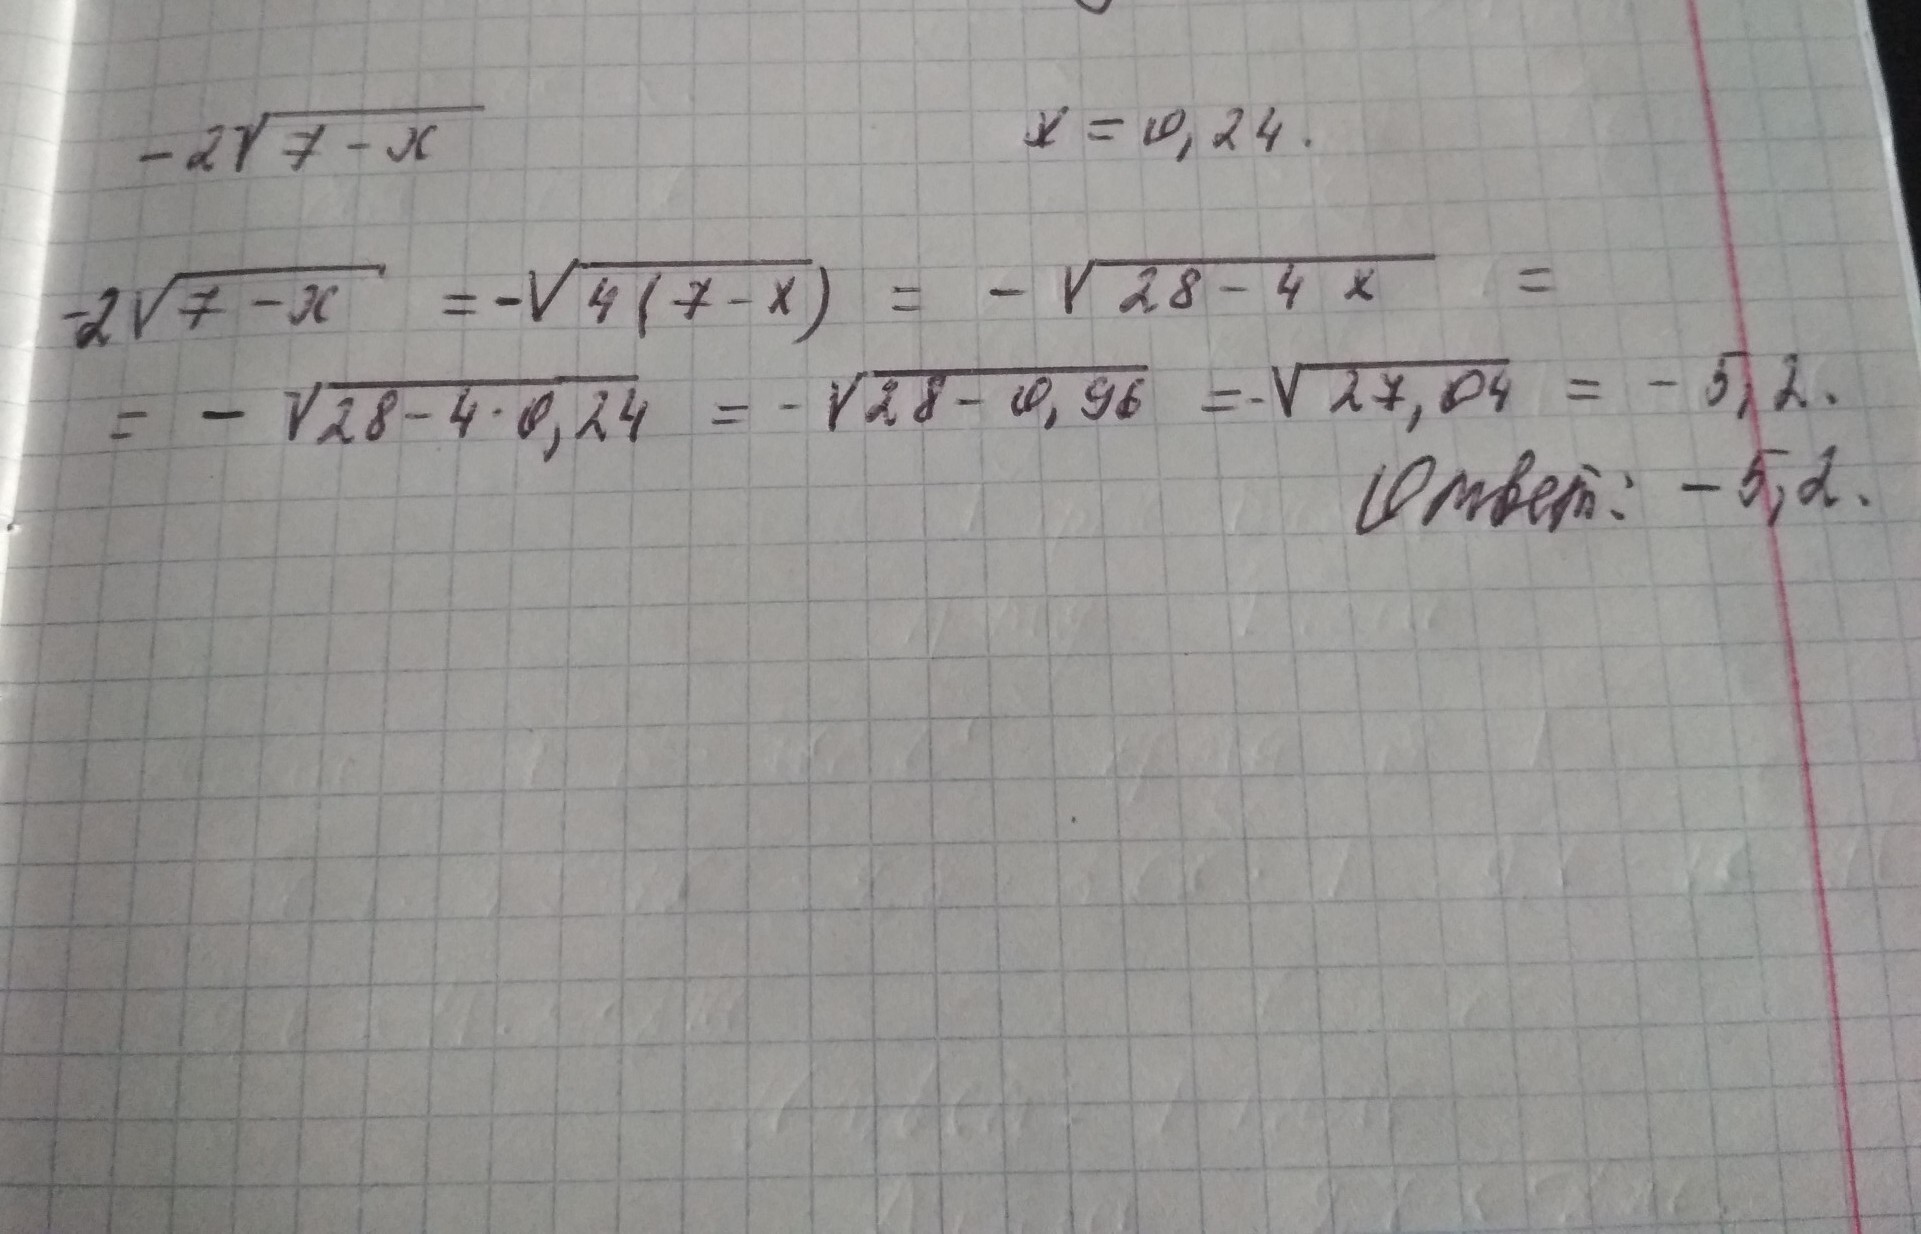 -2√7-x x = 0,24.
-2√7-x = -√4(7-x) = -√28-4x =
= -√28-4·0,24 = -√28-0,96 = -√27,04 = -5,2.
Ответ: -5,2.